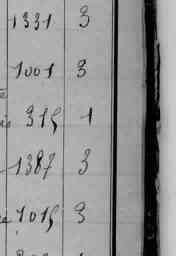 1331 3
1001 3
315 1
1387 3
1015 3